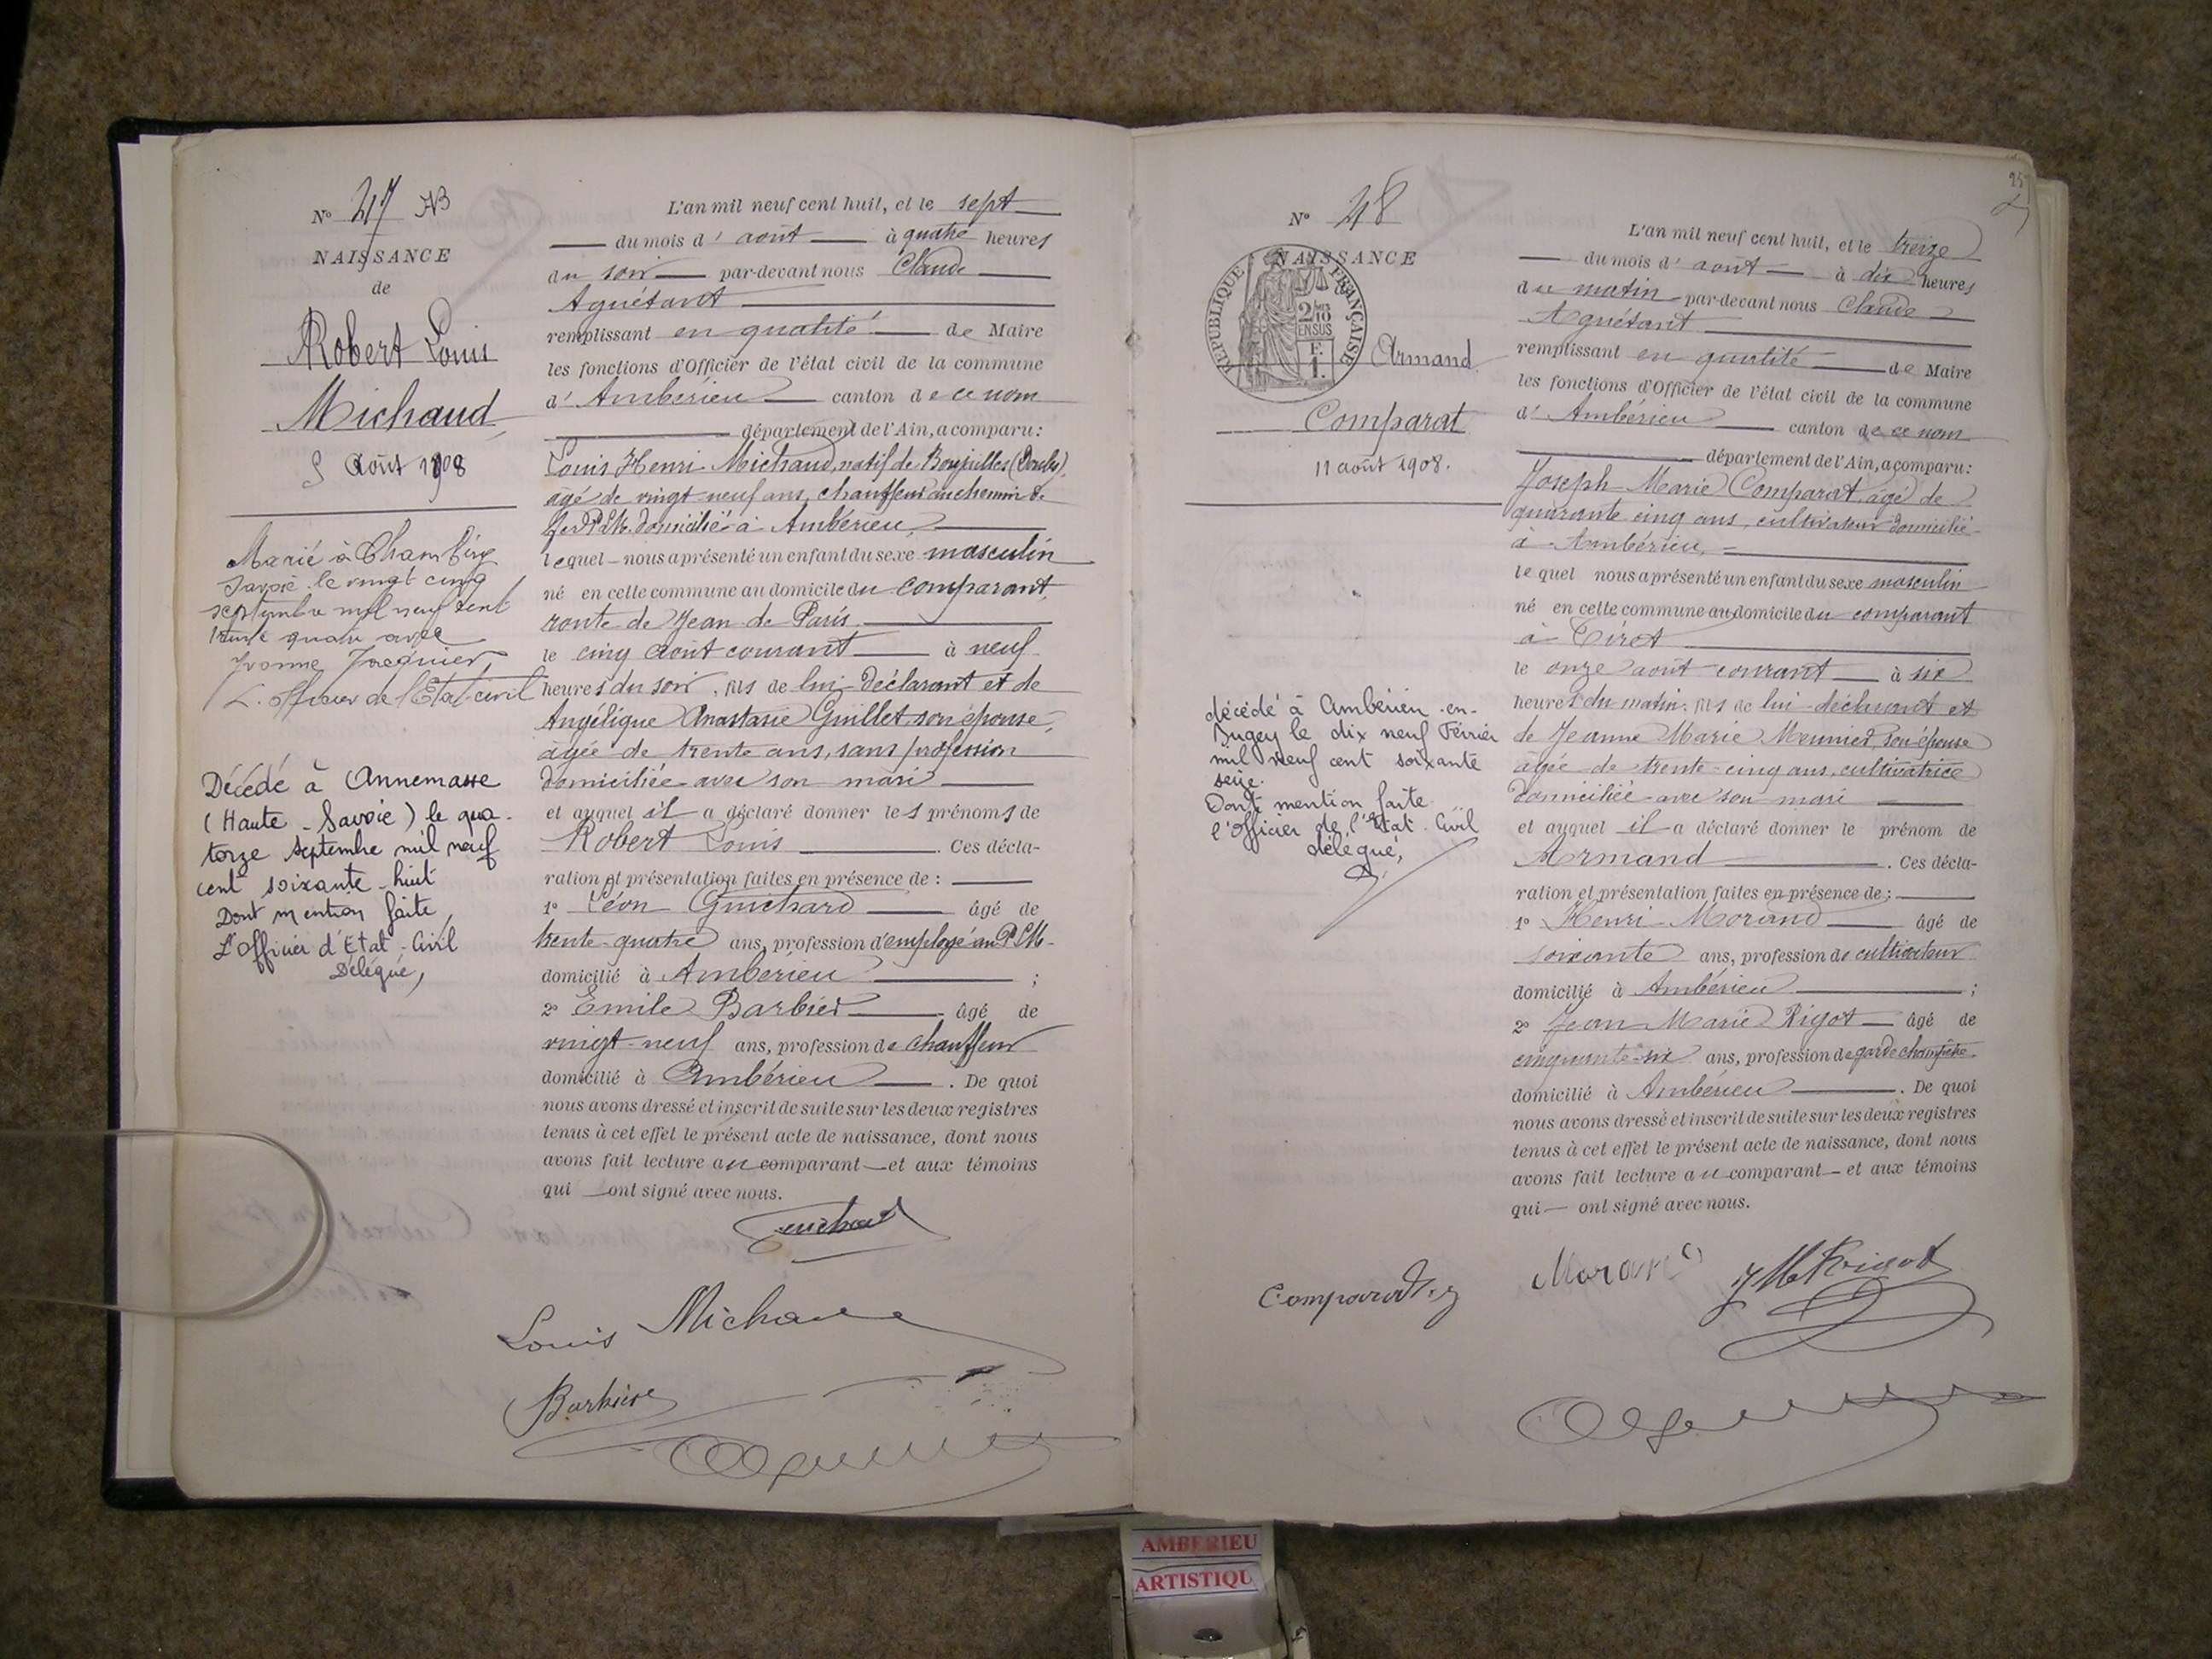 N° 47 AB
NAISSANCE
de
Robert Louis
Michaud
5 Août 1908
Marié à Chambéry
Savoie le vingt cinq
septembre mil neuf cent
trente quatre avec
Yvonne Jacquier,
L'officier de l'Etat-civil
Décédé à Annemasse
(Haute-Savoie) le qua-
torze septembre mil neuf
cent soixante-huit
Dont mention faite,
L'Officier d'Etat-Civil
Délégué,
L'an mil neuf cent huit, et le sept
du mois d'août à quatre heures
du soir par-devant nous Claude
Aguétant
remplissant en qualité de Maire
les fonctions d'Officier de l'état civil de la commune
d'Ambérieu canton de ce nom
département de l'Ain, a comparu:
Louis Henri Michaud, natif de (Doubs),
âgé de vingt neuf ans, chauffeur au chemin de
fer P.L.M. domicilié à Ambérieu,
lequel nous a présenté un enfant du sexe masculin
né en cette commune au domicile du comparant,
route de Jean de Paris.
le cinq août courant à neuf
heures du soir, fils de lui déclarant et de
Angélique Anastasie Guillet, son épouse,
âgée de trente ans, sans profession
domiciliée avec son mari
et auquel il a déclaré donner les prénoms de
Robert Louis. Ces décla-
ration et présentation faites en présence de:
1° Léon Guichard âgé de
trente-quatre ans, profession d'employé au P.L.M.
domicilié à Ambérieu;
2° Emile Barbier âgé de
vingt-neuf ans, profession de chauffeur
domicilié à Ambérieu. De quoi
nous avons dressé et inscrit de suite sur les deux registres
tenus à cet effet le présent acte de naissance, dont nous
avons fait lecture au comparant et aux témoins
qui ont signé avec nous.
Guichard
Louis Michaud
Barbier
N° 48
NAISSANCE
REPUBLIQUE FRANÇAISE
2/10
EN SUS
F.
1.
Armand
Comparat
11 août 1908.
décédé à Ambérieu-en-
Bugey le dix neuf Février
mil neuf cent soixante
seize.
Dont mention faite
l'officier de l'Etat-Civil
délégué,
L'an mil neuf cent huit, et le treize
du mois d'août à dix heures
du matin par-devant nous Claude
Aguétant
remplissant en qualité de Maire
les fonctions d'Officier de l'état civil de la commune
d'Ambérieu canton de ce nom
département de l'Ain, a comparu:
Joseph Marie Comparat, âgé de
quarante cinq ans, cultivateur domicilié
à Ambérieu,
lequel nous a présenté un enfant du sexe masculin
né en cette commune au domicile du comparant
à Tiret
le onze août courant à six
heures du matin, fils de lui déclarant et
de Jeanne Marie Meunier, son épouse
âgée de trente-cinq ans, cultivatrice
domiciliée avec son mari
et auquel il a déclaré donner le prénom de
Armand. Ces décla-
ration et présentation faites en présence de:
1° Henri Morand âgé de
soixante ans, profession de cultivateur
domicilié à Ambérieu;
2° Jean Marie Rigot âgé de
cinquante-six ans, profession de garde champêtre
domicilié à Ambérieu. De quoi
nous avons dressé et inscrit de suite sur les deux registres
tenus à cet effet le présent acte de naissance, dont nous
avons fait lecture au comparant et aux témoins
qui ont signé avec nous.
Comparat J Morand JM Rigot
AMBERIEU
ARTISTIQU